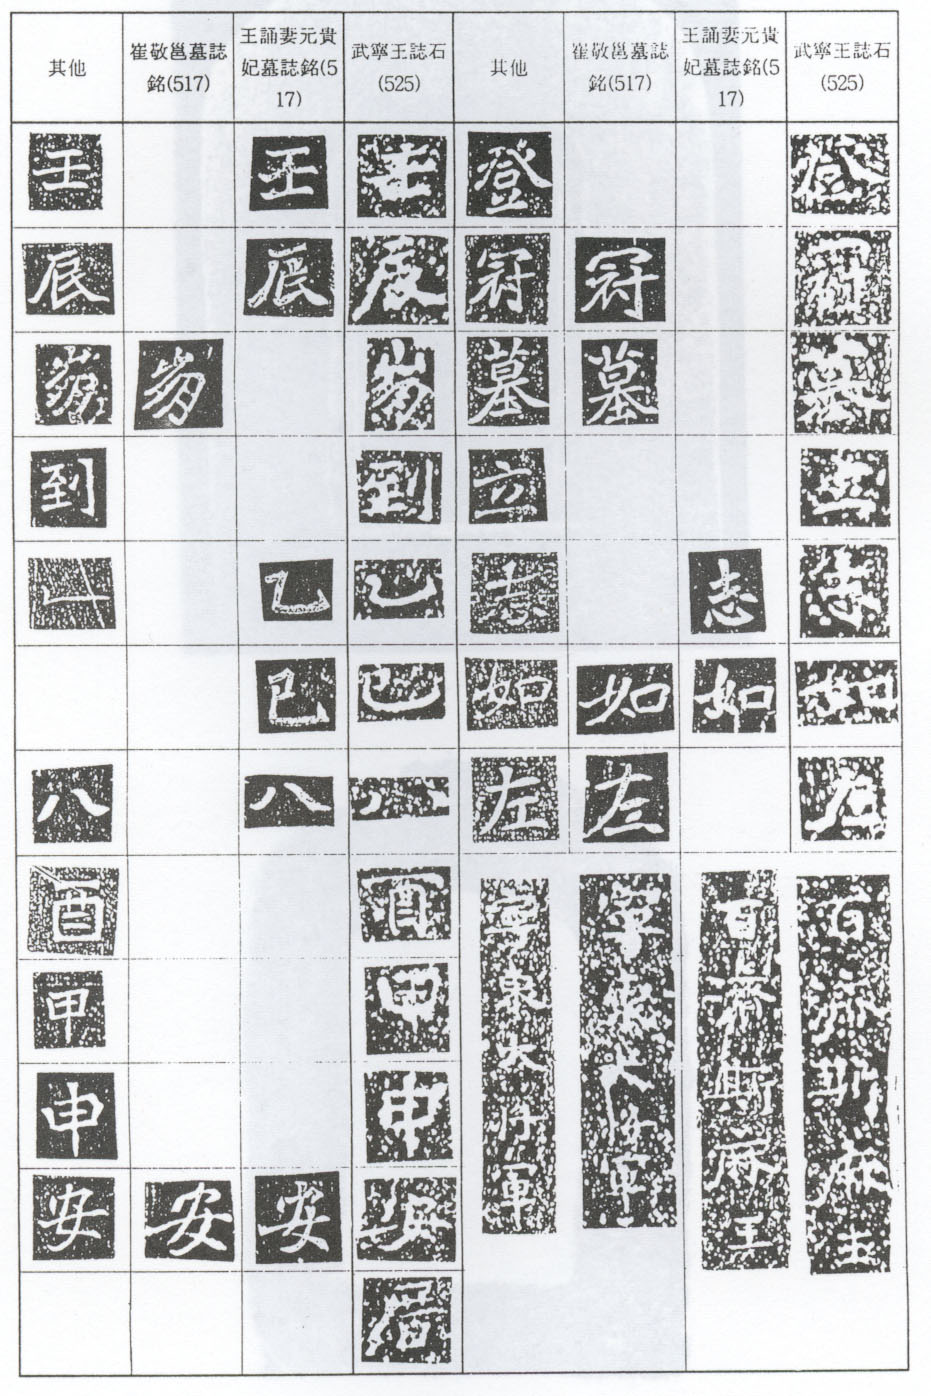 其他
崔敬邕墓誌
銘(517)
王誦妻元貴
妃墓誌銘(5
17)
武寧王誌石
(525)
其他
崔敬邕墓誌
銘(517)
王誦妻元貴
妃墓誌銘(5
17)
武寧王誌石
(525)
壬 壬 壬 登 登
辰 辰 辰 冠 冠 冠
崩 崩 崩 墓 墓 墓
到 到 立 立
乙 乙 志 志 志
已 已 如 如 如 如
八 八 八 左 左 左
酉 酉
甲 甲
申 申
安 安 安 安
居
寧東大将軍
寧東大将軍
百濟斯麻王
百濟斯麻王